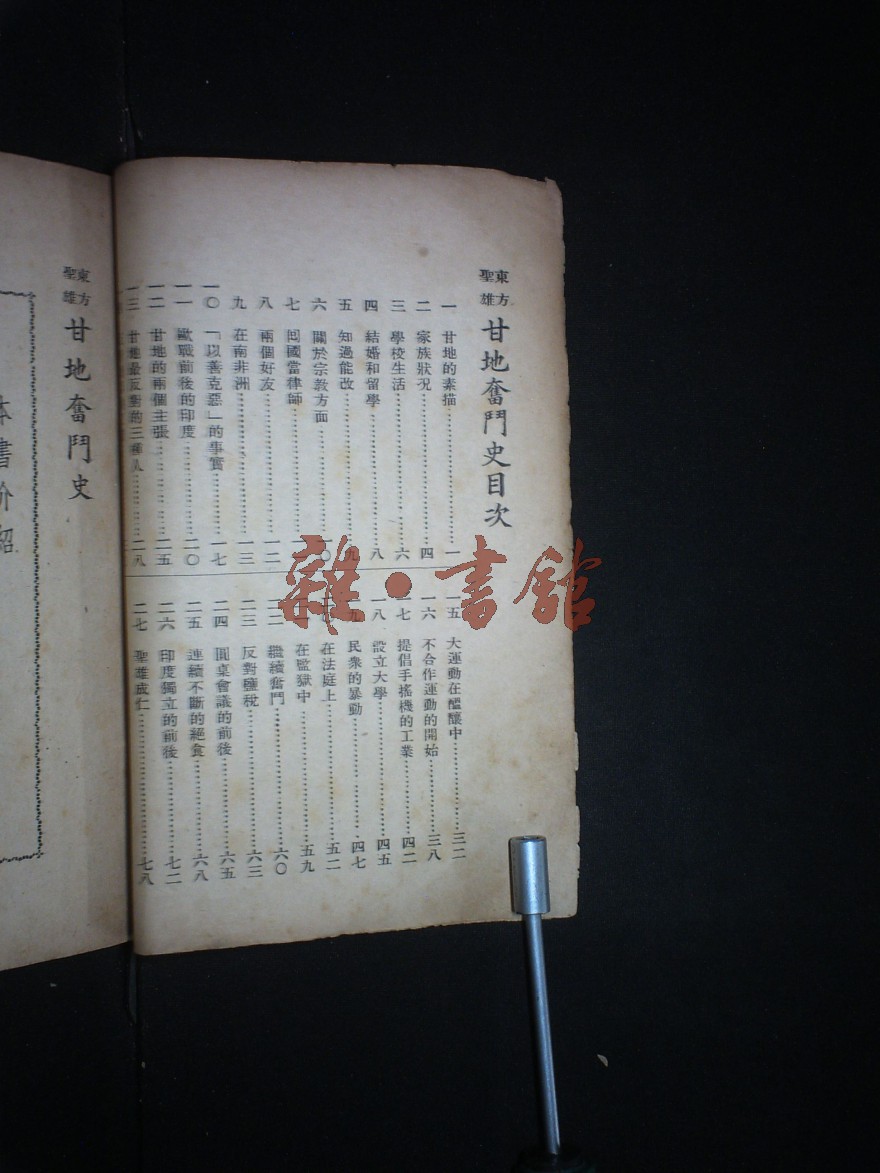 東方
聖雄
甘地奮鬥史目次
一 甘地的素描……一
二 家族狀況……四
三 學校生活……六
四 結婚和留學……八
五 知過能改……九
六 關於宗教方面……一〇
七 回國當律師……
八 兩個好友……一二
九 在南非洲……一三
一〇 「以善克惡」的事實……一七
一一 歐戰前後的印度……二〇
一二 甘地的兩個主張……二五
一三 甘地最反對的三種人……二八
一五 大運動在醞釀中……三二
一六 不合作運動的開始……三八
一七 提倡手搖機的工業……四二
一八 設立大學……四五
一九 民衆的暴動……四七
在法庭上……五二
在監獄中……五九
二二 繼續奮鬥……六〇
二三 反對鹽稅……六三
二四 圓桌會議的前後……六五
二五 連續不斷的絕食……六八
二六 印度獨立的前後……七二
二七 聖雄成仁……七八
東方
聖雄
甘地奮鬥史
本書介紹
雜·書館